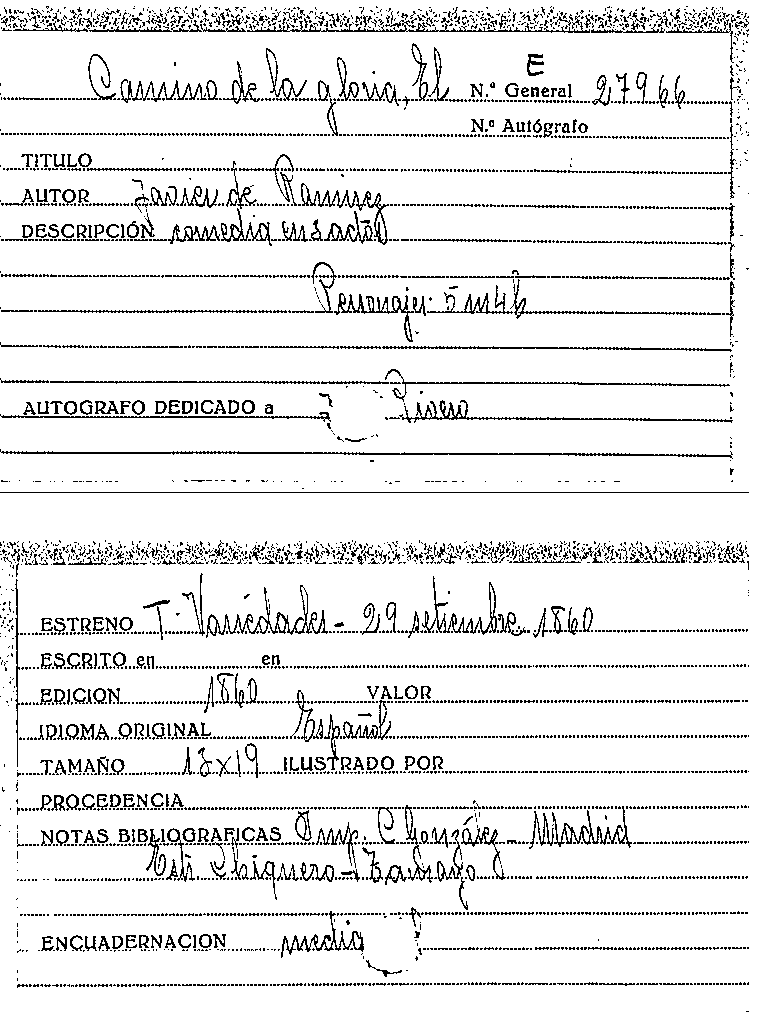 E
Camino de la gloria, El N.º General 27966
N.º Autógrafo
TITULO
AUTOR Javier de Ramirez
DESCRIPCIÓN comedia en 3 actos
Personajes 5 m 4 h
AUTOGRAFO DEDICADO a Rivero
ESTRENO T. Variedades - 29 setiembre 1860
ESCRITO en en
EDICION 1860 VALOR
IDIOMA ORIGINAL Español
TAMAÑO 13x19 ILUSTRADO POR
PROCEDENCIA
NOTAS BIBLIOGRAFICAS Imp. C González - Madrid
ENCUADERNACION media